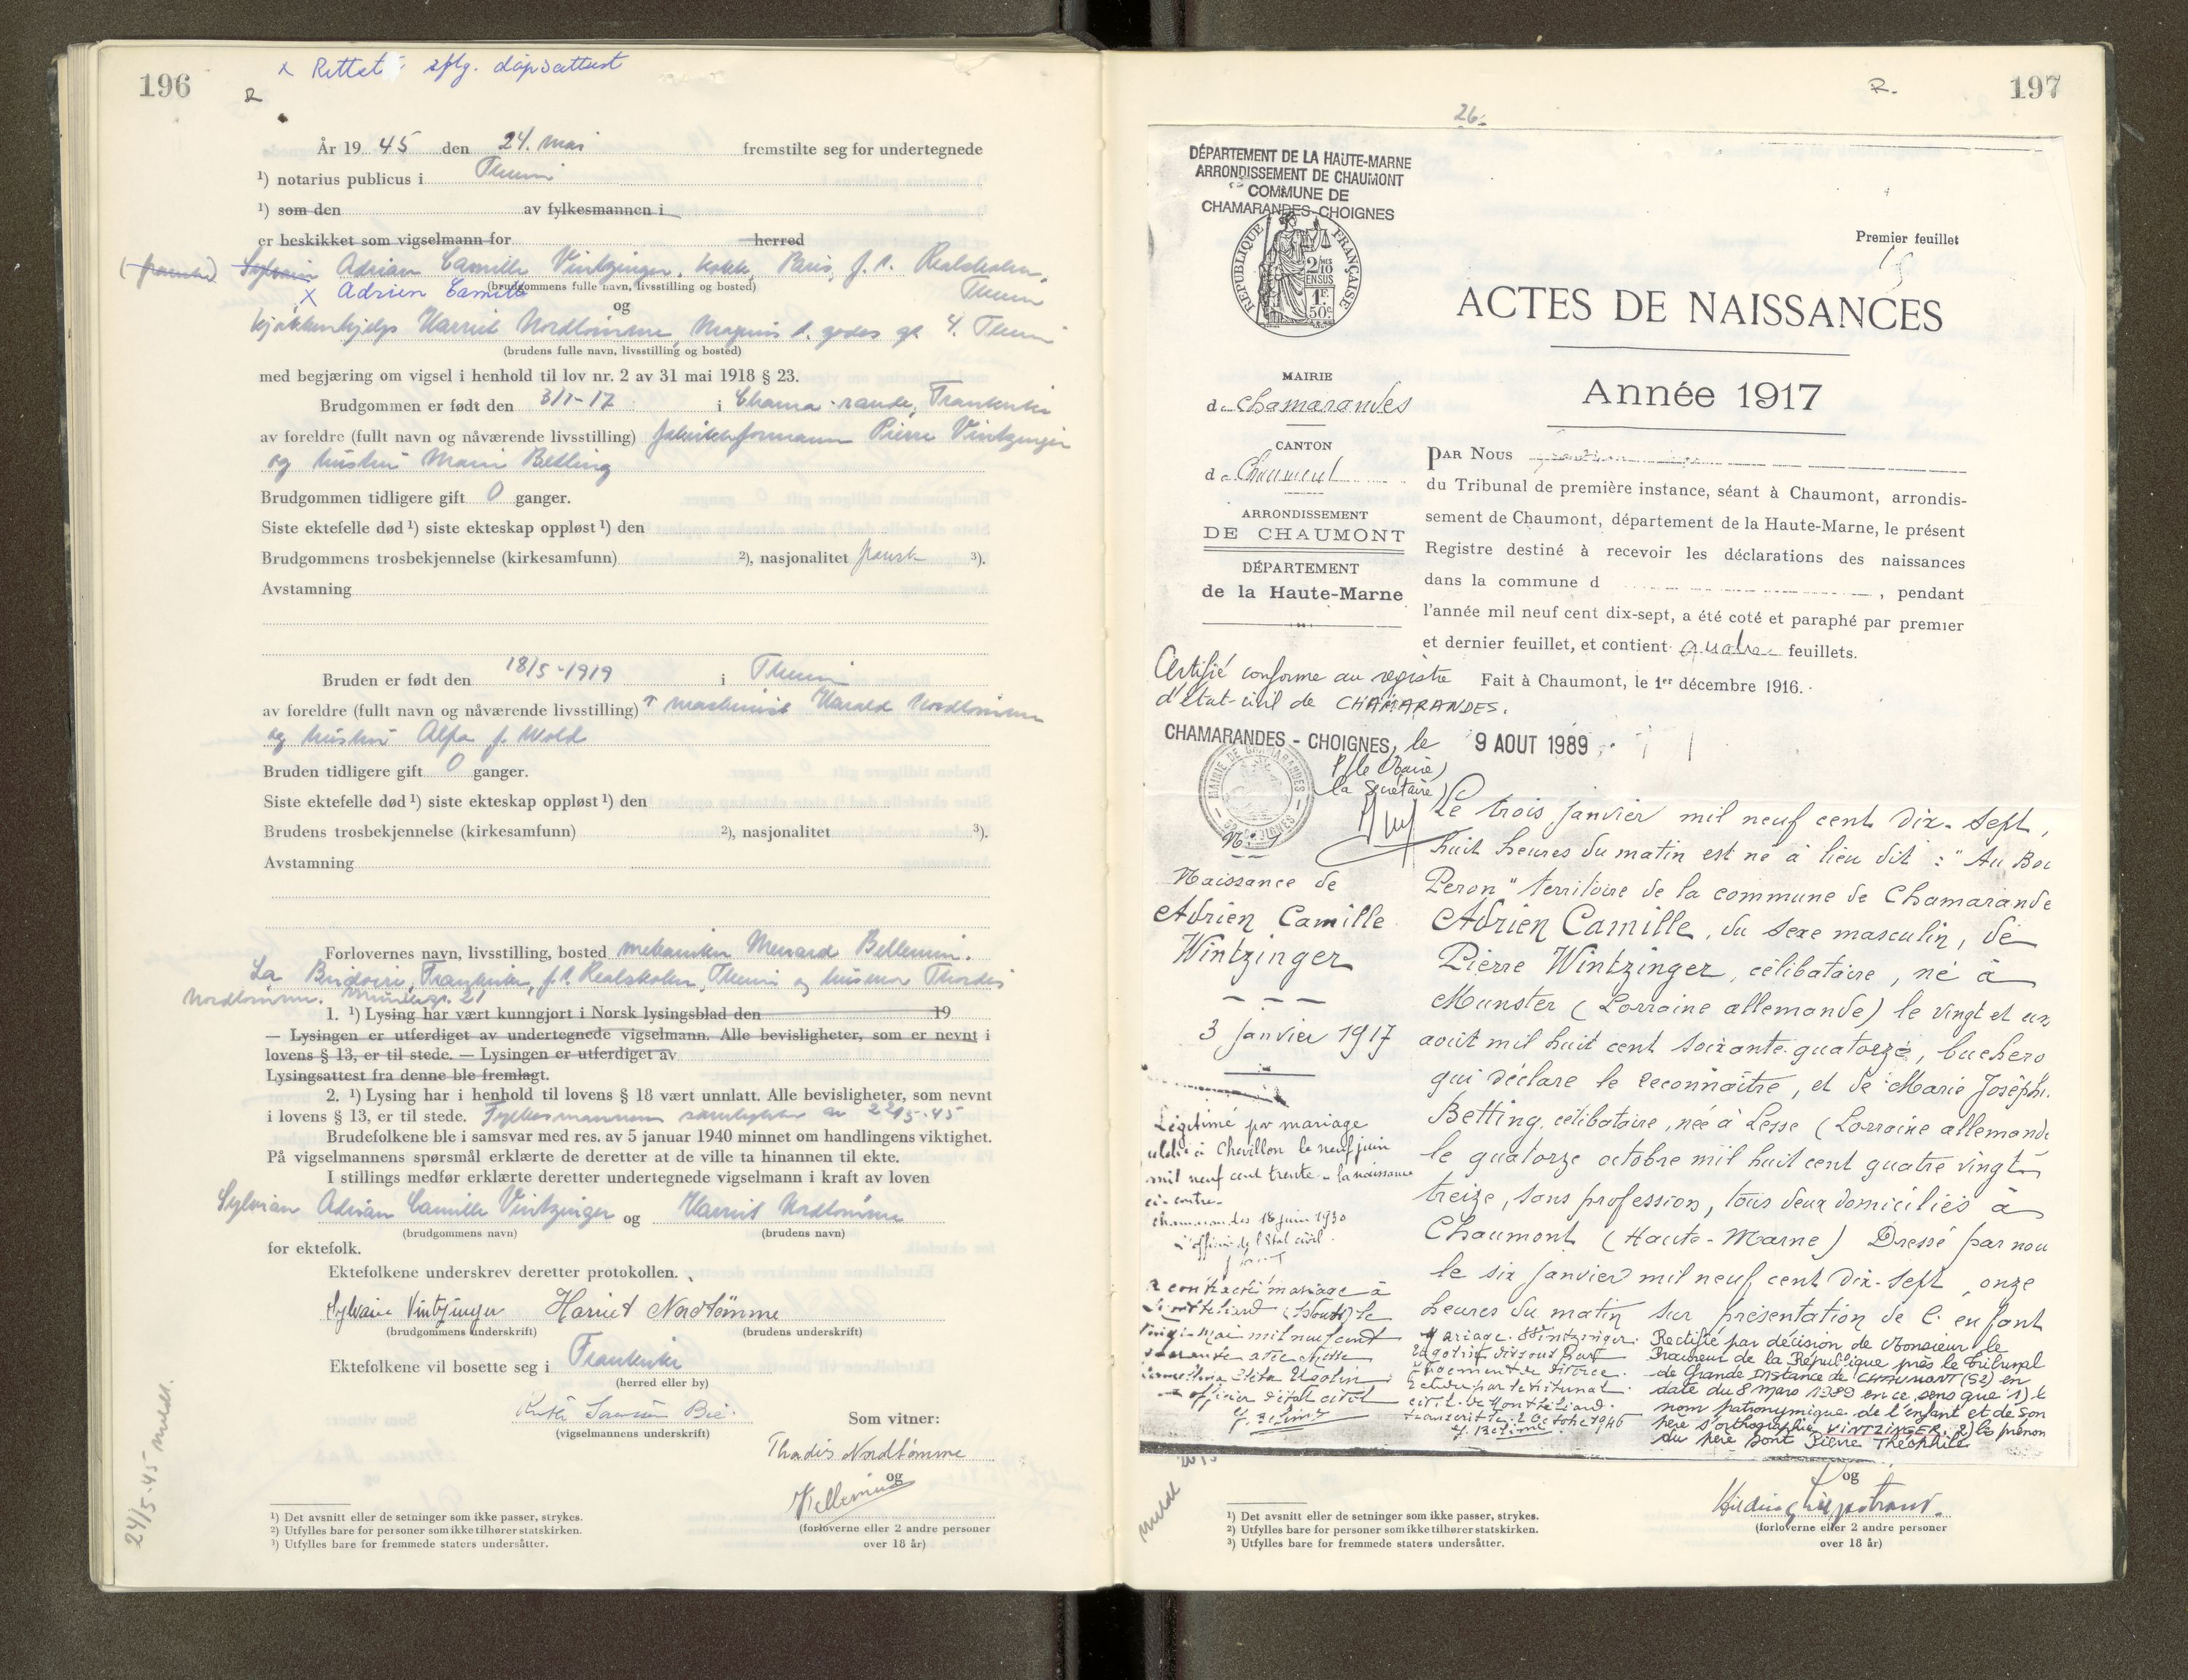 196
x Rettet sflg. dåpsattest
R
År 19 45 den 24. mai fremstilte seg for undertegnede
¹) notarius publicus i
¹) som den av fylkesmannen i
er beskikket som vigselmann for herred
Adrian Camille Vintzinger, kokk, Paris, f. t. Realskolen,
x Adrien Camille (brudgommens fulle navn, livsstilling og bosted)
og
kjøkkenhjelp Harriet Nordtømme, Magnus d. godes gt. 4.
(brudens fulle navn, livsstilling og bosted)
med begjæring om vigsel i henhold til lov nr. 2 av 31 mai 1918 § 23.
Brudgommen er født den 3/1-17 i Chama-rande, Frankrike
av foreldre (fullt navn og nåværende livsstilling) fabrikkformann Pierre Vintzinger
og hustru Marie Betting
Brudgommen tidligere gift 0 ganger.
Siste ektefelle død ¹) siste ekteskap oppløst ¹) den
Brudgommens trosbekjennelse (kirkesamfunn) ²), nasjonalitet fransk ³).
Avstamning
Bruden er født den 18/5-1919 i
av foreldre (fullt navn og nåværende livsstilling) maskinist Harald Nordtømme
og hustru Alfa f. Wold
Bruden tidligere gift 0 ganger.
Siste ektefelle død ¹) siste ekteskap oppløst ¹) den
Brudens trosbekjennelse (kirkesamfunn) ²), nasjonalitet ³).
Avstamning
Forlovernes navn, livsstilling, bosted mekaniker
Frankrike, f. t. Realskolen, og husmor Thordis
Nordtømme. 21
1. ¹) Lysing har vært kunngjort i Norsk lysingsblad den 19
— Lysingen er utferdiget av undertegnede vigselmann. Alle bevisligheter, som er nevnt i
lovens § 13, er til stede. — Lysingen er utferdiget av
Lysingsattest fra denne ble fremlagt.
2. ¹) Lysing har i henhold til lovens § 18 vært unnlatt. Alle bevisligheter, som nevnt
i lovens § 13, er til stede. Fylkesmannens samtykke av 22/5-45
Brudefolkene ble i samsvar med res. av 5 januar 1940 minnet om handlingens viktighet.
På vigselmannens spørsmål erklærte de deretter at de ville ta hinannen til ekte.
I stillings medfør erklærte deretter undertegnede vigselmann i kraft av loven
Sylvian Adrian Camille Vintzinger og Harriet Nordtømme
(brudgommens navn) (brudens navn)
for ektefolk.
Ektefolkene underskrev deretter protokollen.
Sylvain Vintzinger Harriet Nordtømme
(brudgommens underskrift) (brudens underskrift)
Ektefolkene vil bosette seg i Frankrike
(herred eller by)
(vigselmannens underskrift)
Som vitner:
Thordis Nordtømme
og
(forloverne eller 2 andre personer
over 18 år)
¹) Det avsnitt eller de setninger som ikke passer, strykes.
²) Utfylles bare for personer som ikke tilhører statskirken.
³) Utfylles bare for fremmede staters undersåtter.
24/5-45 meldt.
197
R.
26.
DÉPARTEMENT DE LA HAUTE-MARNE
ARRONDISSEMENT DE CHAUMONT
COMMUNE DE
CHAMARANDES-CHOIGNES
RÉPUBLIQUE FRANÇAISE
2/10 MES
EN SUS
1F.
50c
Premier feuillet
ACTES DE NAISSANCES
Année 1917
MAIRIE
de Chamarandes
CANTON
de Chaumont
ARRONDISSEMENT
DE CHAUMONT
DÉPARTEMENT
de la Haute-Marne
PAR NOUS
du Tribunal de première instance, séant à Chaumont, arrondis-
sement de Chaumont, département de la Haute-Marne, le présent
Registre destiné à recevoir les déclarations des naissances
dans la commune d , pendant
l'année mil neuf cent dix-sept, a été coté et paraphé par premier
et dernier feuillet, et contient quatre feuillets.
Fait à Chaumont, le 1er décembre 1916.
Certifié conforme au registre
d'état-civil de CHAMARANDES.
CHAMARANDES - CHOIGNES, le 9 AOUT 1989
P/le Maire,
la Secrétaire
MAIRIE DE CHAMARANDES CHOIGNES
N° 1
Naissance de
Adrien Camille
Wintzinger
3 janvier 1917
Légitimé par mariage
célébré à Chevillon le neuf juin
mil neuf cent trente - la naissance
ci-contre.
Chamarandes 18 juin 1930
L'officier de l'Etat civil.
A contracté mariage à
Montbéliard (Doubs) le
vingt mai mil neuf cent
quarante avec
officier d'état civil
Le trois janvier mil neuf cent dix-sept,
huit heures du matin est né à lieu dit : "Au Bou
Peron" territoire de la commune de Chamarande
Adrien Camille, du sexe masculin, de
Pierre Wintzinger, célibataire, né à
Munster (Lorraine allemande) le vingt et un
août mil huit cent soixante-quatorze, bucheron
qui déclare le reconnaître, et de Marie Joséphi.
Betting, célibataire, née à Lesse (Lorraine allemande
le quatorze octobre mil huit cent quatre vingt
treize, sans profession, tous deux domiciliés à
Chaumont (Haute-Marne) Dressé par nou
le six janvier mil neuf cent dix-sept, onze
heures du matin sur présentation de l'enfant
Mariage Wintzinger.
Ugolin dissout par
jugement de divorce.
rendu par le tribunal
civil de Montbéliard.
transcrit le 2 octobre 1946
Rectifié par décision de Monsieur le
Procureur de la République près le Tribunal
de Grande Instance de CHAUMONT (52) en
date du 8 mars 1989 en ce sens que 1) le
nom patronymique de l'enfant et de son
père s'orthographie VINTZINGER. 2) les prénom
du père sont Pierre Théophile
og
(forloverne eller 2 andre personer
over 18 år)
meldt
¹) Det avsnitt eller de setninger som ikke passer, strykes.
²) Utfylles bare for personer som ikke tilhører statskirken.
³) Utfylles bare for fremmede staters undersåtter.